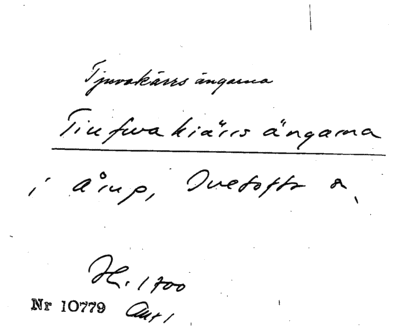 Tjuvakärrs ängarna
Tiufwa kiärrs ängarna
i Årup, Ivetofta s.
H. 1700
Nr 10779